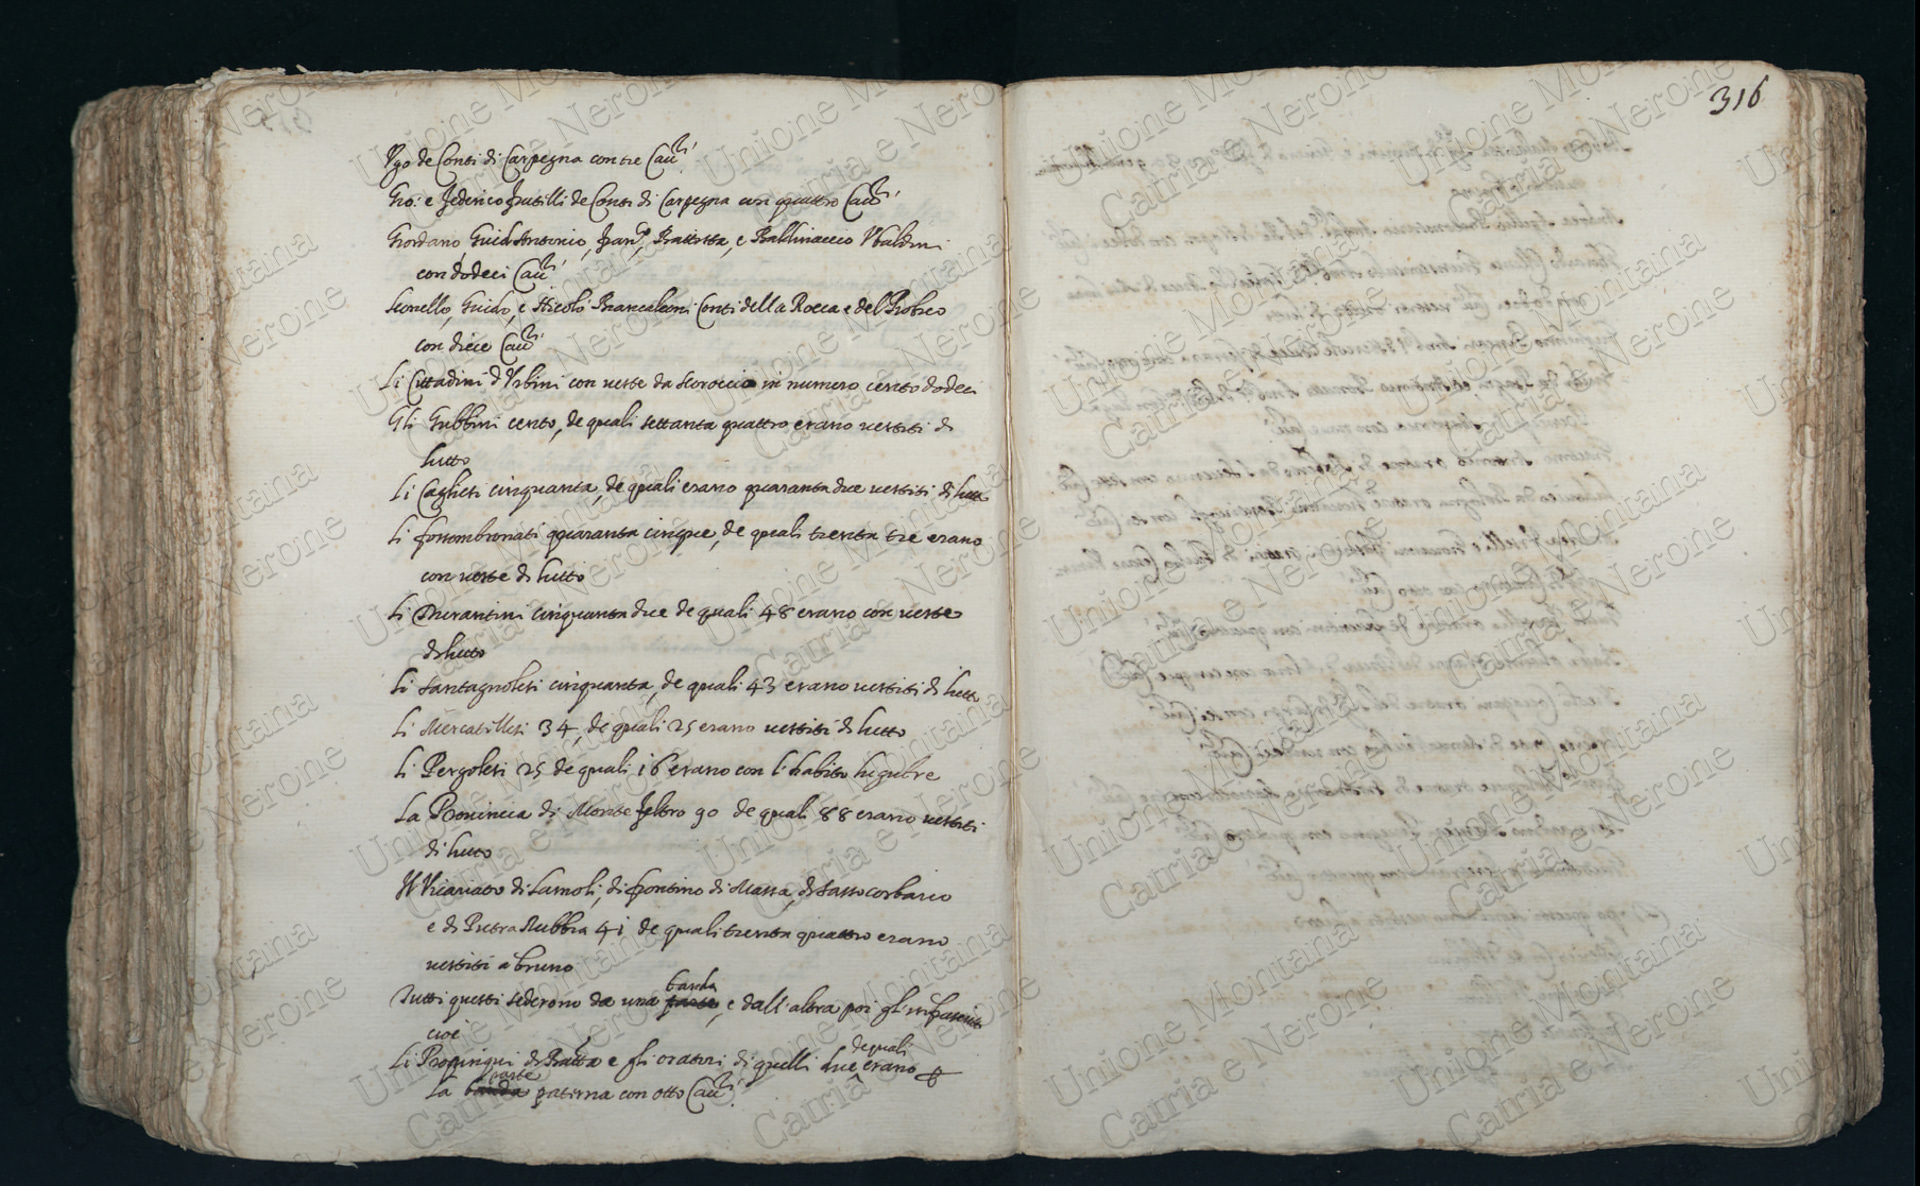 Ugo de Conti di Carpegna con tre Cau.ri
Gio: e Federico fratelli de Conti di Carpegna con quattro Cau.ri
Giordano, Guid'Antonio, Fran.co, Battista, e Baldinaccio Ubaldini
con dodeci Cau.ri
Leonello, Guido, e Nicolò Brancaleoni Conti della Rocca e del Piobico
con diece Cau.ri
Li Cittadini d'Urbini con veste da scoroccio in numero cento dodeci
Gli Gubbini cento, de quali settanta quattro erano vestiti di
lutto
Li Cagliesi cinquanta, de quali erano quaranta due vestiti di lutto
Li fossombronati quaranta cinque, de quali trenta tre erano
con veste di lutto
Li Durantini cinquanta due de quali 48 erano con veste
di lutto
Li Santagnolesi cinquanta, de quali 43 erano vestiti di lutto
Li Mercatillesi 34, de quali 25 erano vestiti di lutto
Li Pergolesi 25 de quali 16 erano con l'habito lugubre
La Provincia di Monte Feltro 90 de quali 88 erano vestiti
di lutto
Il Vicariato di Lamoli, di frontino di Massa, di Sassocorbaro
e di Pietra Rubbia 41 de quali trenta quattro erano
vestiti a bruno
banda
Tutti questi sederono da una parte, e dall'altra poi gl'infrascritti
cioè
de quali
Li Propinqui di Batta e gli oratori di quelli due erano
parte
La banda paterna con otto Cau.ri
316
Unione Montana
Catria e Nerone